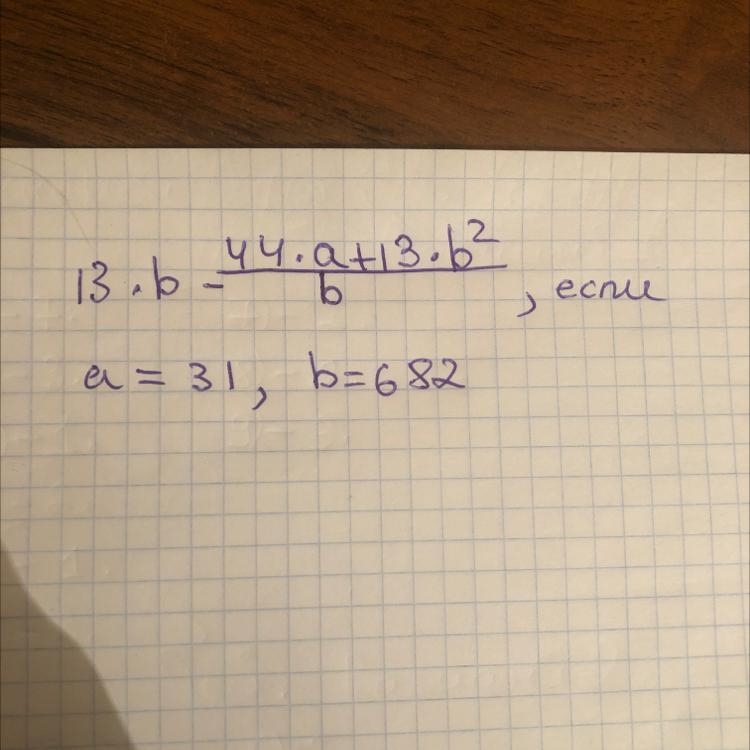 13 · b - (44 · a + 13 · b²) / b , если
a = 31, b = 682